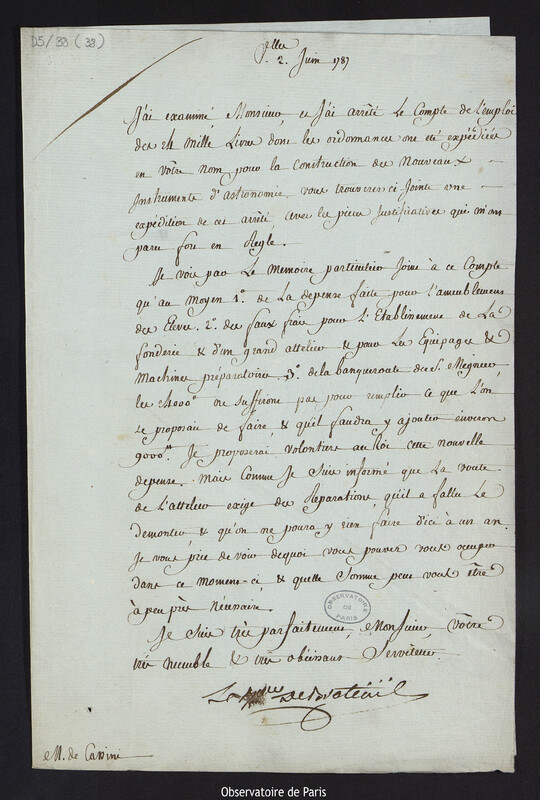 D5/38 (33)
Vlles
2. Juin 1787
J'ai examiné Monsieur, et J'ai arrêté Le Compte de L'emploi
des 24 mille Livres dont les ordonnances ont été expédiées
en votre nom pour la Construction des Nouveaux
Instruments d'Astronomie, vous trouverez ci Jointe une
expédition de cet arrêté avec les pieces Justificatives qui m'ont
paru fort en Regle.
Je vois par Le Memoire particulier Joint à ce Compte
qu'au Moyen 1º. de La depense faite pour l'ameublement
des Eleves. 2º. des faux frais pour L'Etablissement de La
fonderie & d'un grand attelier & pour Les Equipages &
Machines préparatoires. 3º. de la banqueroute du S. Megnier
les 24000tt ne suffiront pas pour remplir ce que L'on
se proposait de faire, & qu'il faudra y ajouter environ
9000tt. Je proposerai volontiers au Roi cette nouvelle
depense. Mais Comme Je suis informé que La voute
de L'attelier exige des Reparations, qu'il a fallu Le
Demonter & qu'on ne poura y rien faire d'ici à un an.
Je vous prie de voir dequoi vous pouvez vous occuper
dans ce moment-ci & quelle Somme peut vous être
à peu près Nécessaire.
Je suis très parfaitement, Monsieur, votre
très humble & très obéissant Serviteur.
Le Bon De Breteüil
OBSERVATOIRE DE PARIS
M. de Cassini
Observatoire de Paris